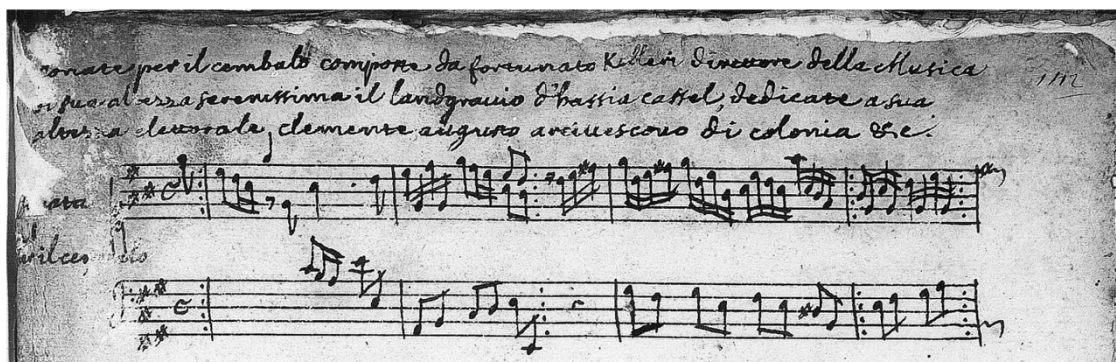 sonate per il cembalo composte da fortunato Kelleri direttore della Musica
di sua altezza serenissima il landgravio d'hassia cassel, dedicate a sua
altezza elettorale, clemente augusto arcivescovo di colonia &c.